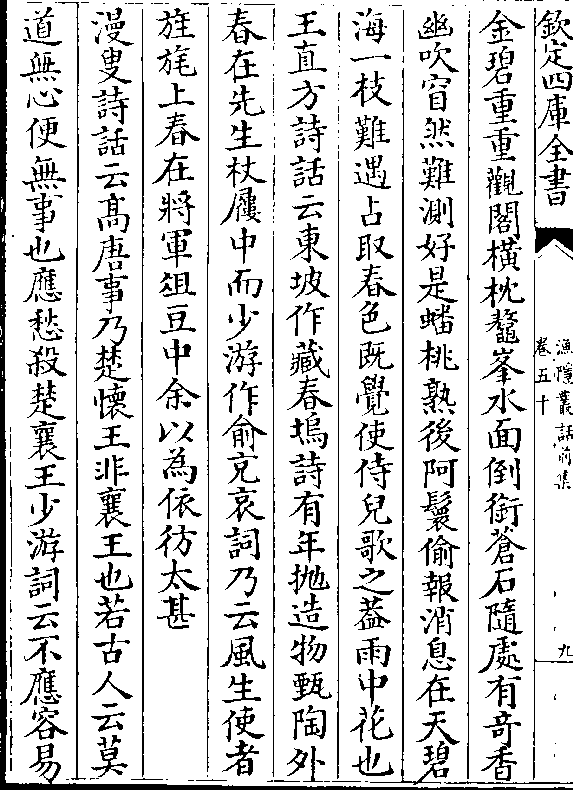 欽定四庫全書
漁隱叢話前集
卷五十
九
金碧重重觀閣橫枕鼇峯水面倒銜蒼石隨處有奇香
幽吹窅然難測好是蟠桃熟後阿鬟偷報消息在天碧
海一枝難遇占取春色既覺使侍兒歌之葢雨中花也
王直方詩話云東坡作藏春塢詩有年抛造物甄陶外
春在先生杖屨中而少游作俞充哀詞乃云風生使者
旌旄上春在將軍俎豆中余以為依彷太甚
漫叟詩話云髙唐事乃楚懷王非襄王也若古人云莫
道無心便無事也應愁殺楚襄王少游詞云不應容易